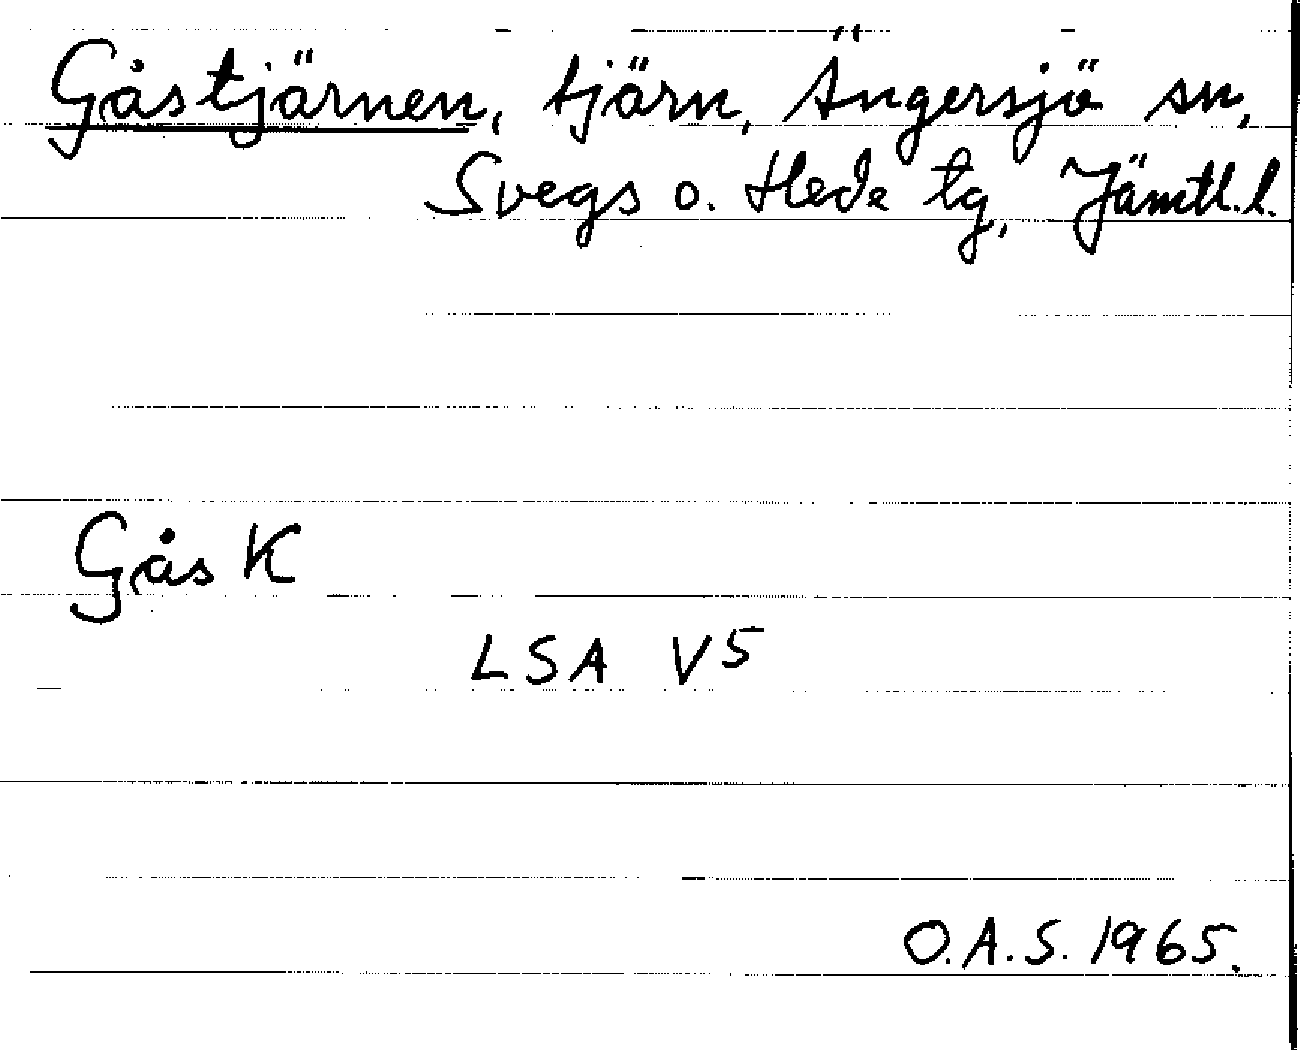 Gåstjärnen, tjärn, Ängersjö sn,
Svegs o. Hede tg, Jämtl.l.
Gås K
LSA V5
O.A.S. 1965.